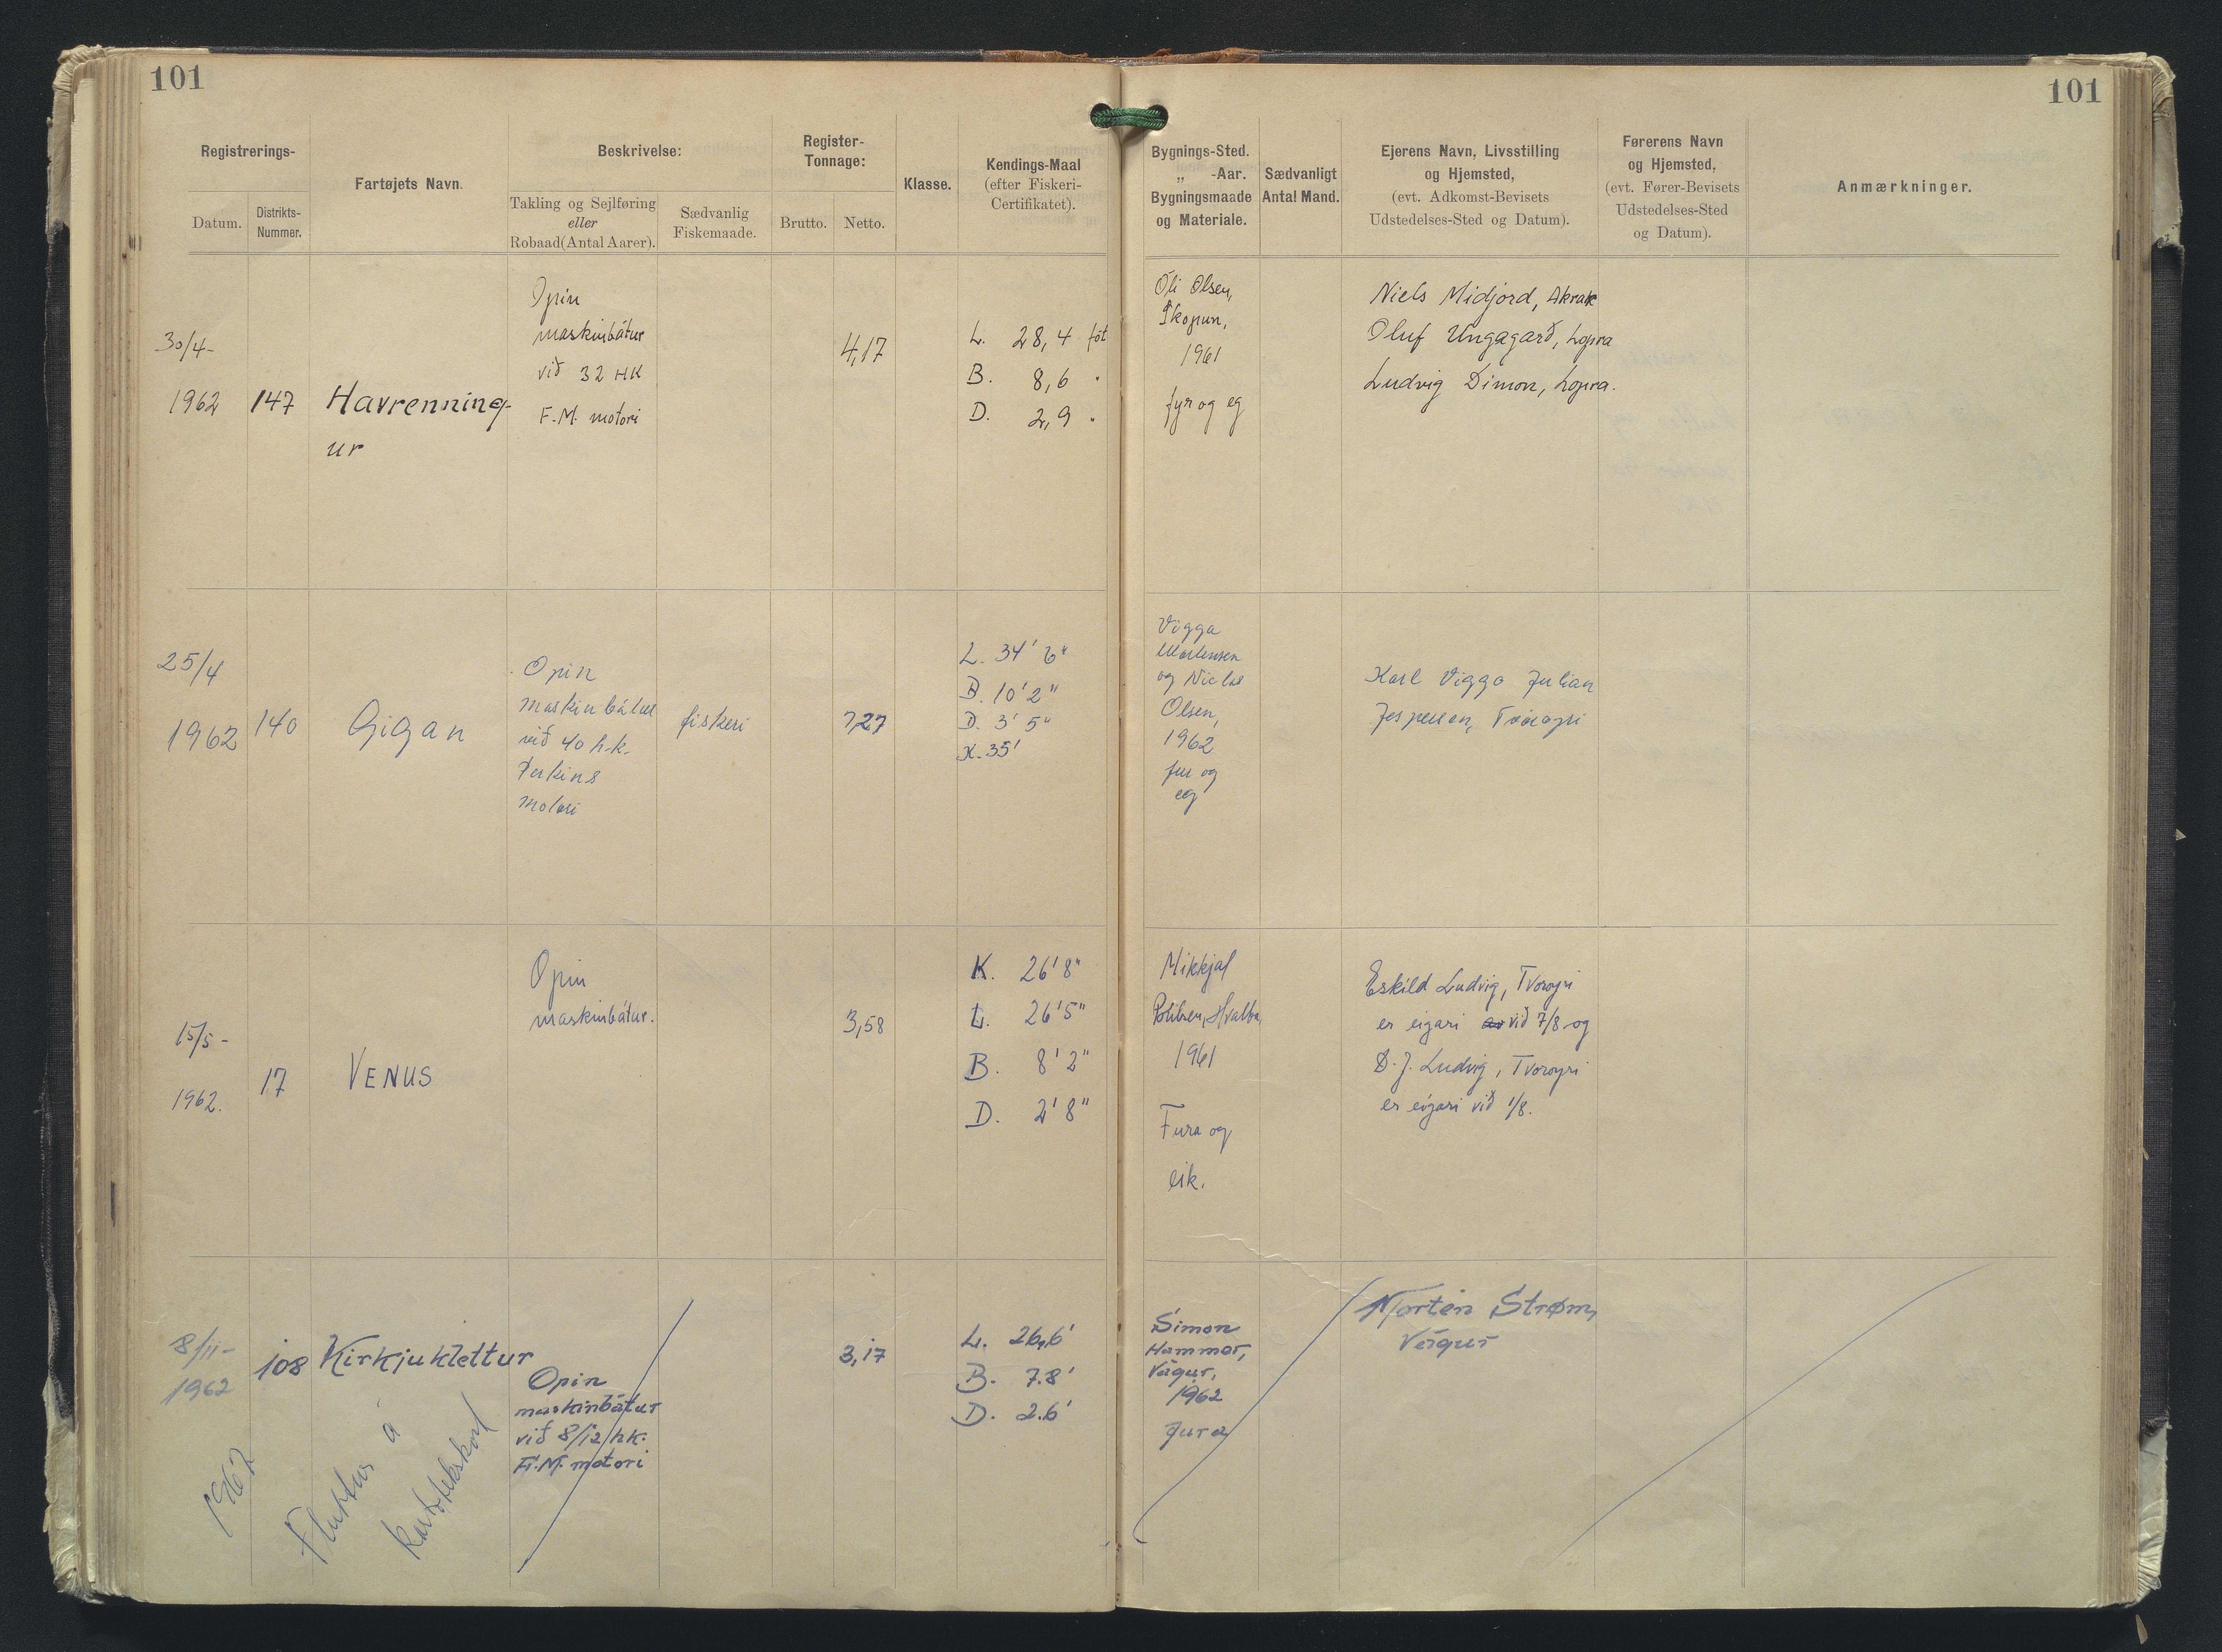 101
101
Registrerings-
Datum.
Distrikts-
Nummer.
Fartøjets Navn.
Beskrivelse:
Takling og Sejlføring
eller
Robaad (Antal Aarer).
Sædvanlig
Fiskemaade.
Register-
Tonnage:
Brutto.
Netto.
Klasse.
Kendings-Maal
(efter Fiskeri-
Certifikatet).
Bygnings-Sted.
„ -Aar.
Bygningsmaade
og Materiale.
Sædvanligt
Antal Mand.
Ejerens Navn, Livsstilling
og Hjemsted,
(evt. Adkomst-Bevisets
Udstedelses-Sted og Datum).
Førerens Navn
og Hjemsted,
(evt. Fører-Bevisets
Udstedelses-Sted
og Datum).
Anmærkninger.
30/4-
1962
147
Havrenning-
ur
Opin
maskinbátur
við 32 HK
F.M. motori
4,17
L. 28,4 fót
B. 8,6 "
D. 2,9 "
Óli Olsen,
Skopun,
1961
fyr og eg
Niels Midjord, Akrar
Oluf Ungagarð, Lopra
Ludvig Dimon, Lopra.
25/4
1962
140
Gigan
Opin
maskinbátur
við 40 h.k.
Perkins
motori
fiskeri
7,27
L. 34' 6"
B. 10' 2"
D. 3' 5"
K. 35'
Vigga
Mortensen
og Niclas
Olsen,
1962
fur og
eg
Karl Viggo Julian
Jespersen, Tvöroyri
15/5-
1962.
17
VENUS
Opin
maskinbátur.
3,58
K. 26' 8"
L. 26' 5"
B. 8' 2"
D. 2' 8"
Mikkjal
Poulsen, Hvalba,
1961
Fura og
eik.
Eskild Ludvig, Tvoroyri
er eigari av við 7/8 og
D. J. Ludvig, Tvoroyri
er eigari við 1/8.
8/11-
1962
108
Kirkjuklettur
Opin
maskinbátur
við 8/12 hk.
F.M. motori
3,17
L. 26,6'
B. 7.8'
D. 2.6'
Simon
Hammer,
Vágur,
1962
fura
Morten Strøm,
Vágur
1967
Fluttur á
kartotekskort